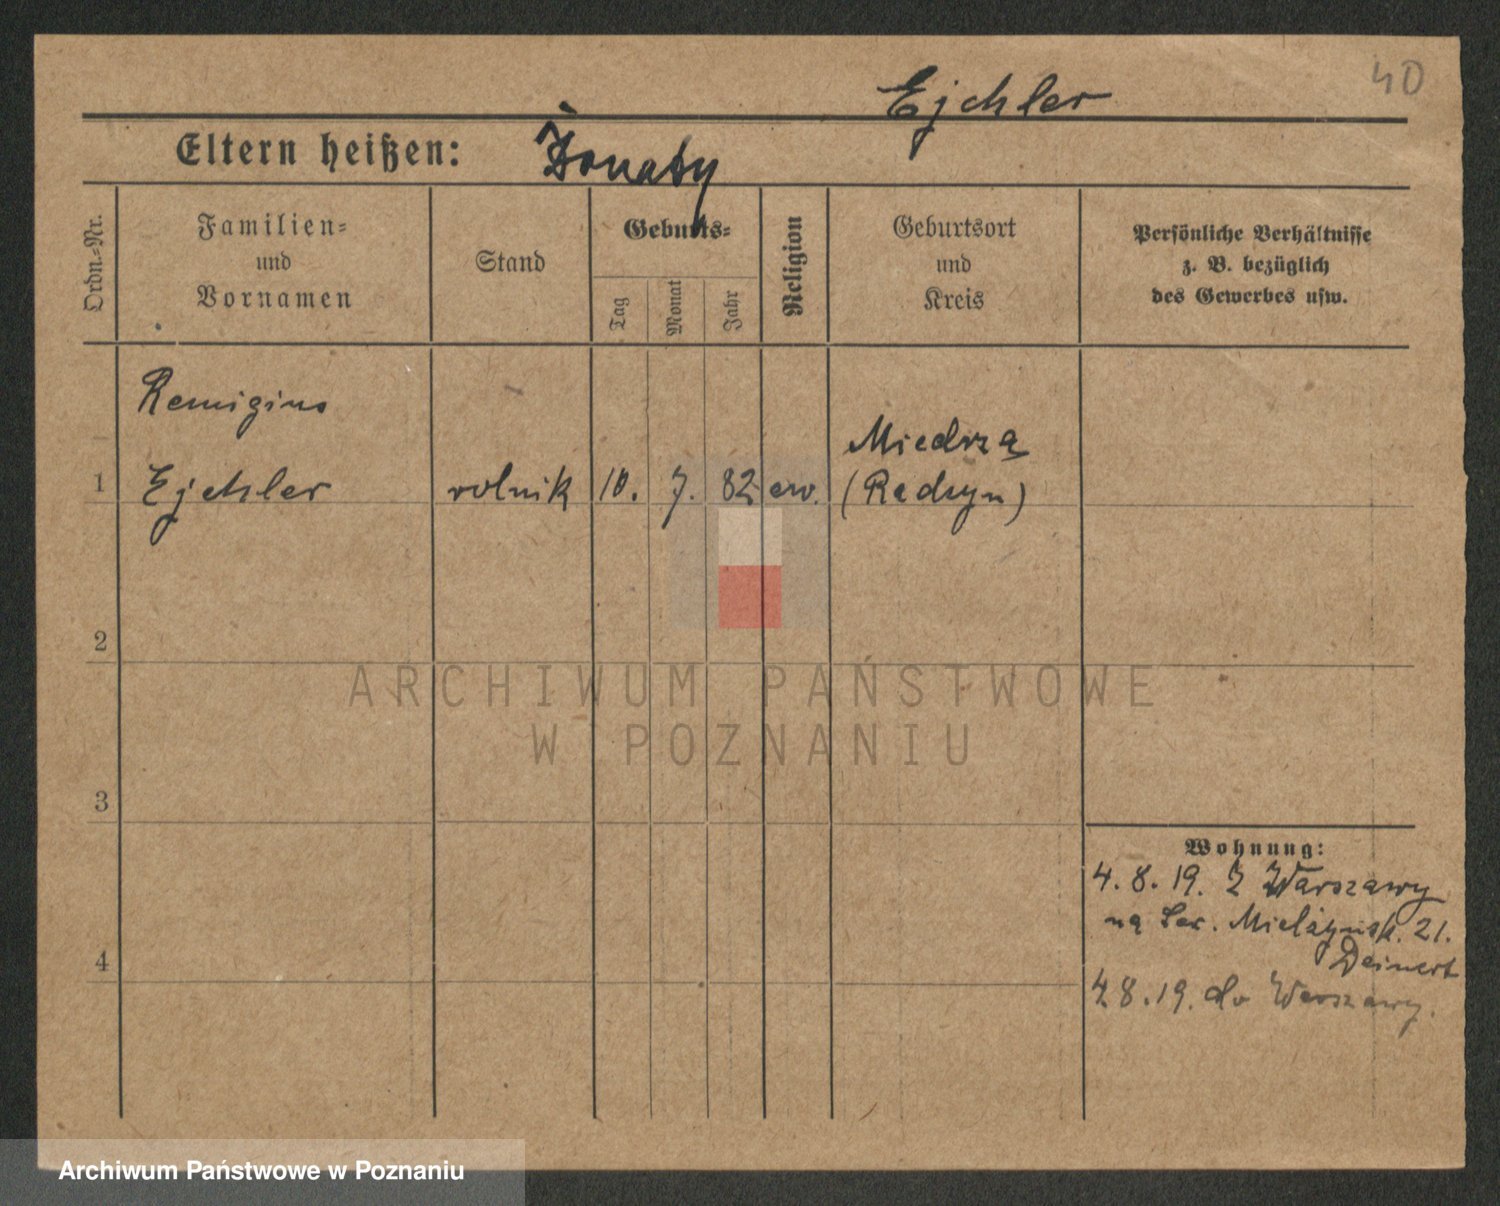 40
Ejchler
Eltern heißen: Żonaty
Ordn.-Nr.
Familien-
und
Vornamen
Stand
Geburts-
Tag
Monat
Jahr
Religion
Geburtsort
und
Kreis
Persönliche Verhältnisse
z. B. bezüglich
des Gewerbes usw.
Remigius
Miedrzą
1 Ejchler rolnik 10. 7. 82 ew. (Radzyn)
2
3
4
Wohnung:
4. 8. 19. Z Warszawy
na Sew. Mielżyńsk. 21.
Deinert
4. 8. 19. do Warszawy.
ARCHIWUM PAŃSTWOWE
W POZNANIU
Archiwum Państwowe w Poznaniu